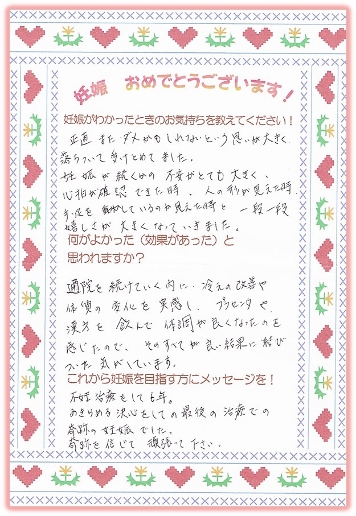 妊娠 おめでとうございます！
妊娠がわかったときのお気持ちを教えてください！
正直 また ダメかもしれないという思いが大きく
落ちついて 受けとめてました。
妊娠が続くかの 不安がとても大きく、
心拍が確認できた時、人の形が見えた時
手足を動かしているのが見えた時と 一段一段
嬉しさが大きくなっていきました。
何がよかった（効果があった）と
思われますか？
通院を続けていく内に 冷えの改善や
体質の変化を実感し、プラセンタや
漢方を飲んで体調が良くなったのを
感じたので、そのすべてが良い結果に結び
ついた気がしています。
これから妊娠を目指す方にメッセージを！
不妊治療をして6年。
あきらめる決心をしての最後の治療での
奇跡の妊娠でした。
奇跡を信じて 頑張って下さい。